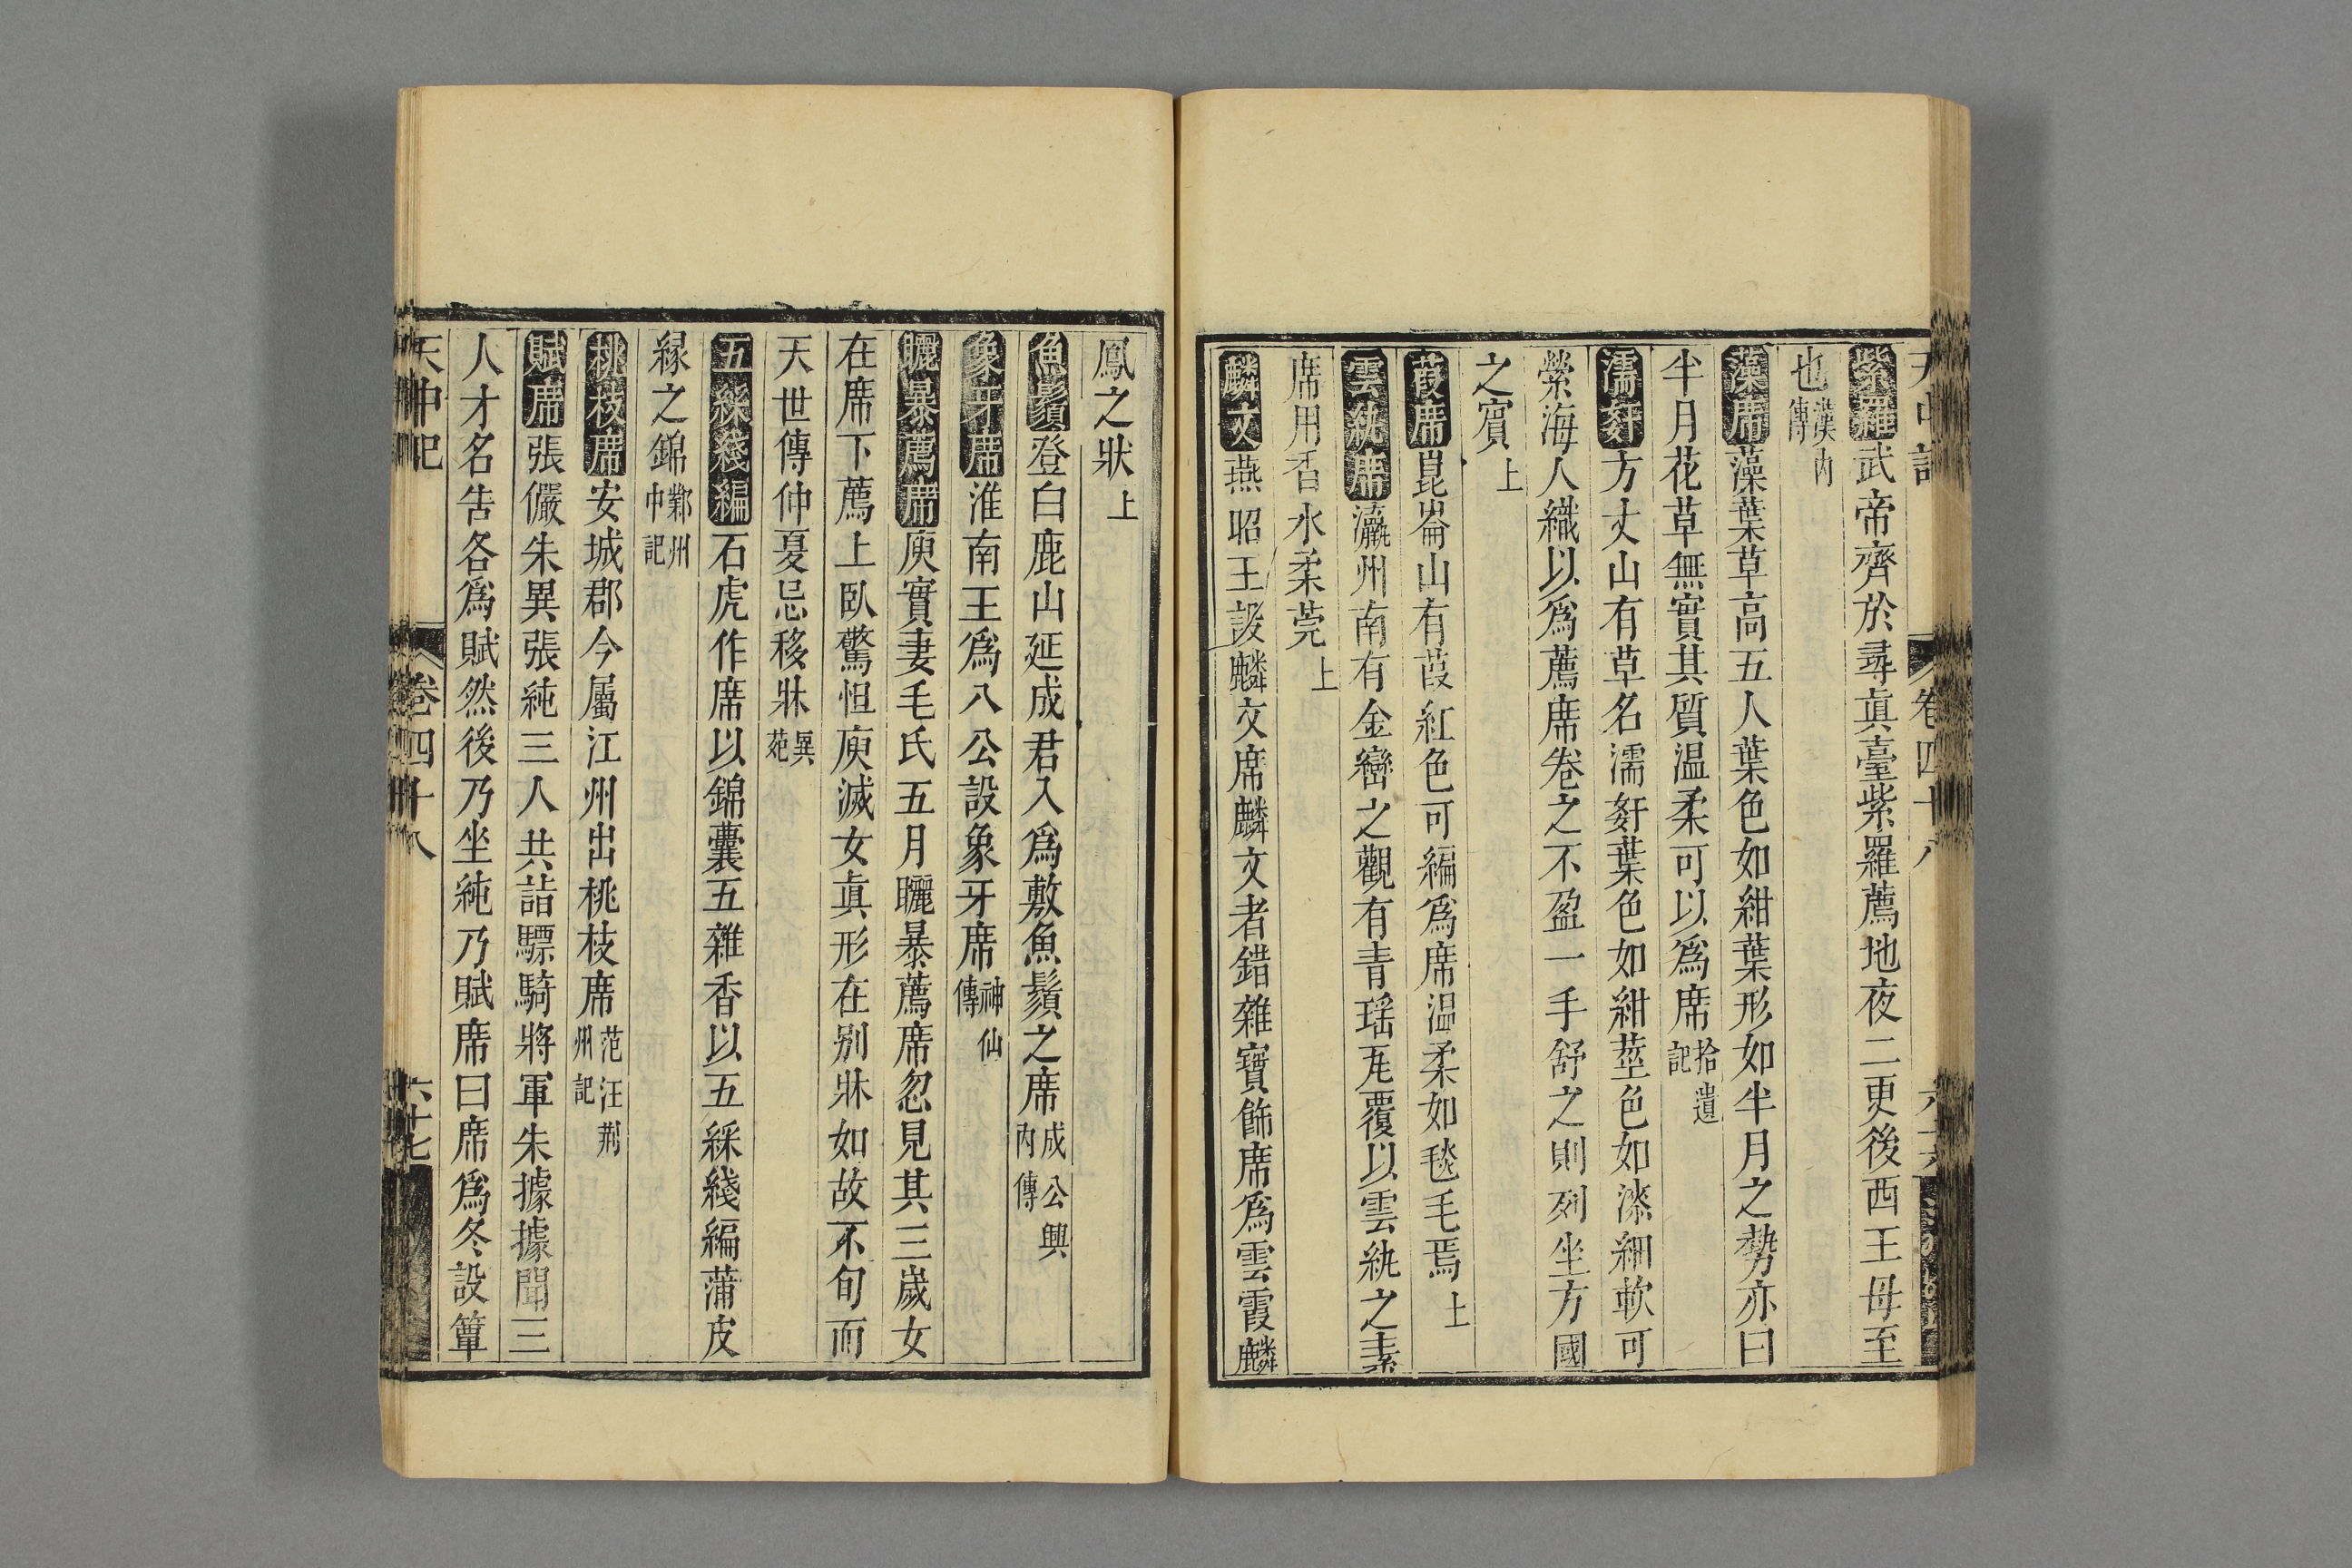 天中記　卷四十八　六十六
紫羅武帝齊於尋眞臺紫羅薦地夜二更後西王母至
也漢內傳
藻席藻葉草高五人葉色如紺葉形如半月之勢亦曰
半月花草無實其質温柔可以爲席拾遺記
濡姧方丈山有草名濡姧葉色如紺莖色如漆細軟可
縈海人織以爲薦席卷之不盈一手舒之則列坐方國
之賓上
葭席崑崙山有葭紅色可編爲席温柔如毯毛焉上
雲紈席瀛州南有金巒之觀有青瑶瓦覆以雲紈之素
席用香水柔莞上
麟文燕昭王設麟文席麟文者錯雜寶飾席爲雲霞麟
鳳之狀上
魚鬚登白鹿山延成君入爲敷魚鬚之席成公興內傳
象牙席淮南王爲八公設象牙席神仙傳
曬暴薦席庾實妻毛氏五月曬暴薦席忽見其三歲女
在席下薦上臥驚怛庾滅女眞形在别牀如故不旬而
夭世傳仲夏忌移牀異苑
五綵綫編石虎作席以錦囊五雜香以五綵綫編蒲皮
緣之錦鄴州中記
桃枝席安城郡今屬江州出桃枝席范汪荆州記
賦席張儼朱異張純三人共詣驃騎將軍朱據據聞三
人才名告各爲賦然後乃坐純乃賦席曰席爲冬設簟
天中記　卷四十八　六十七